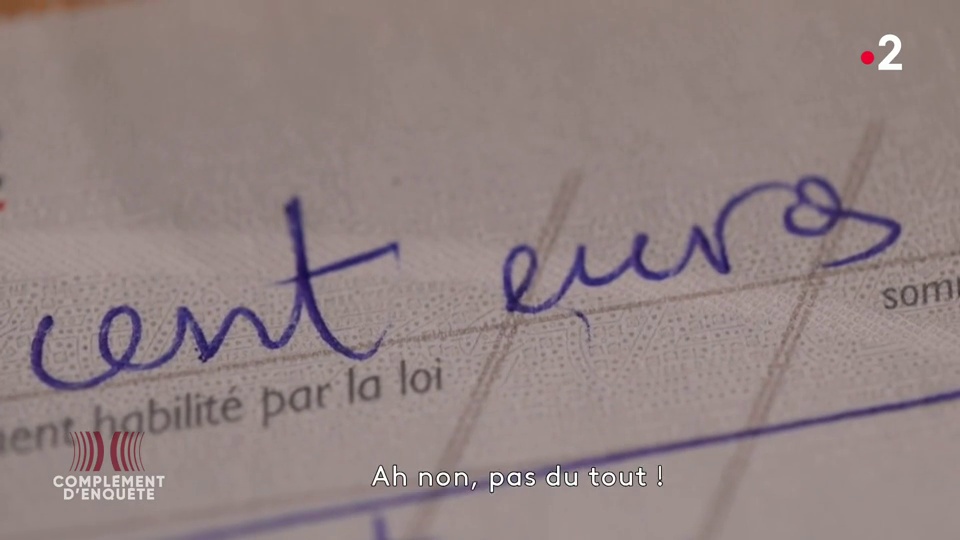 2
cent euros
habilité par la loi
COMPLEMENT
D'ENQUÊTE
Ah non, pas du tout !